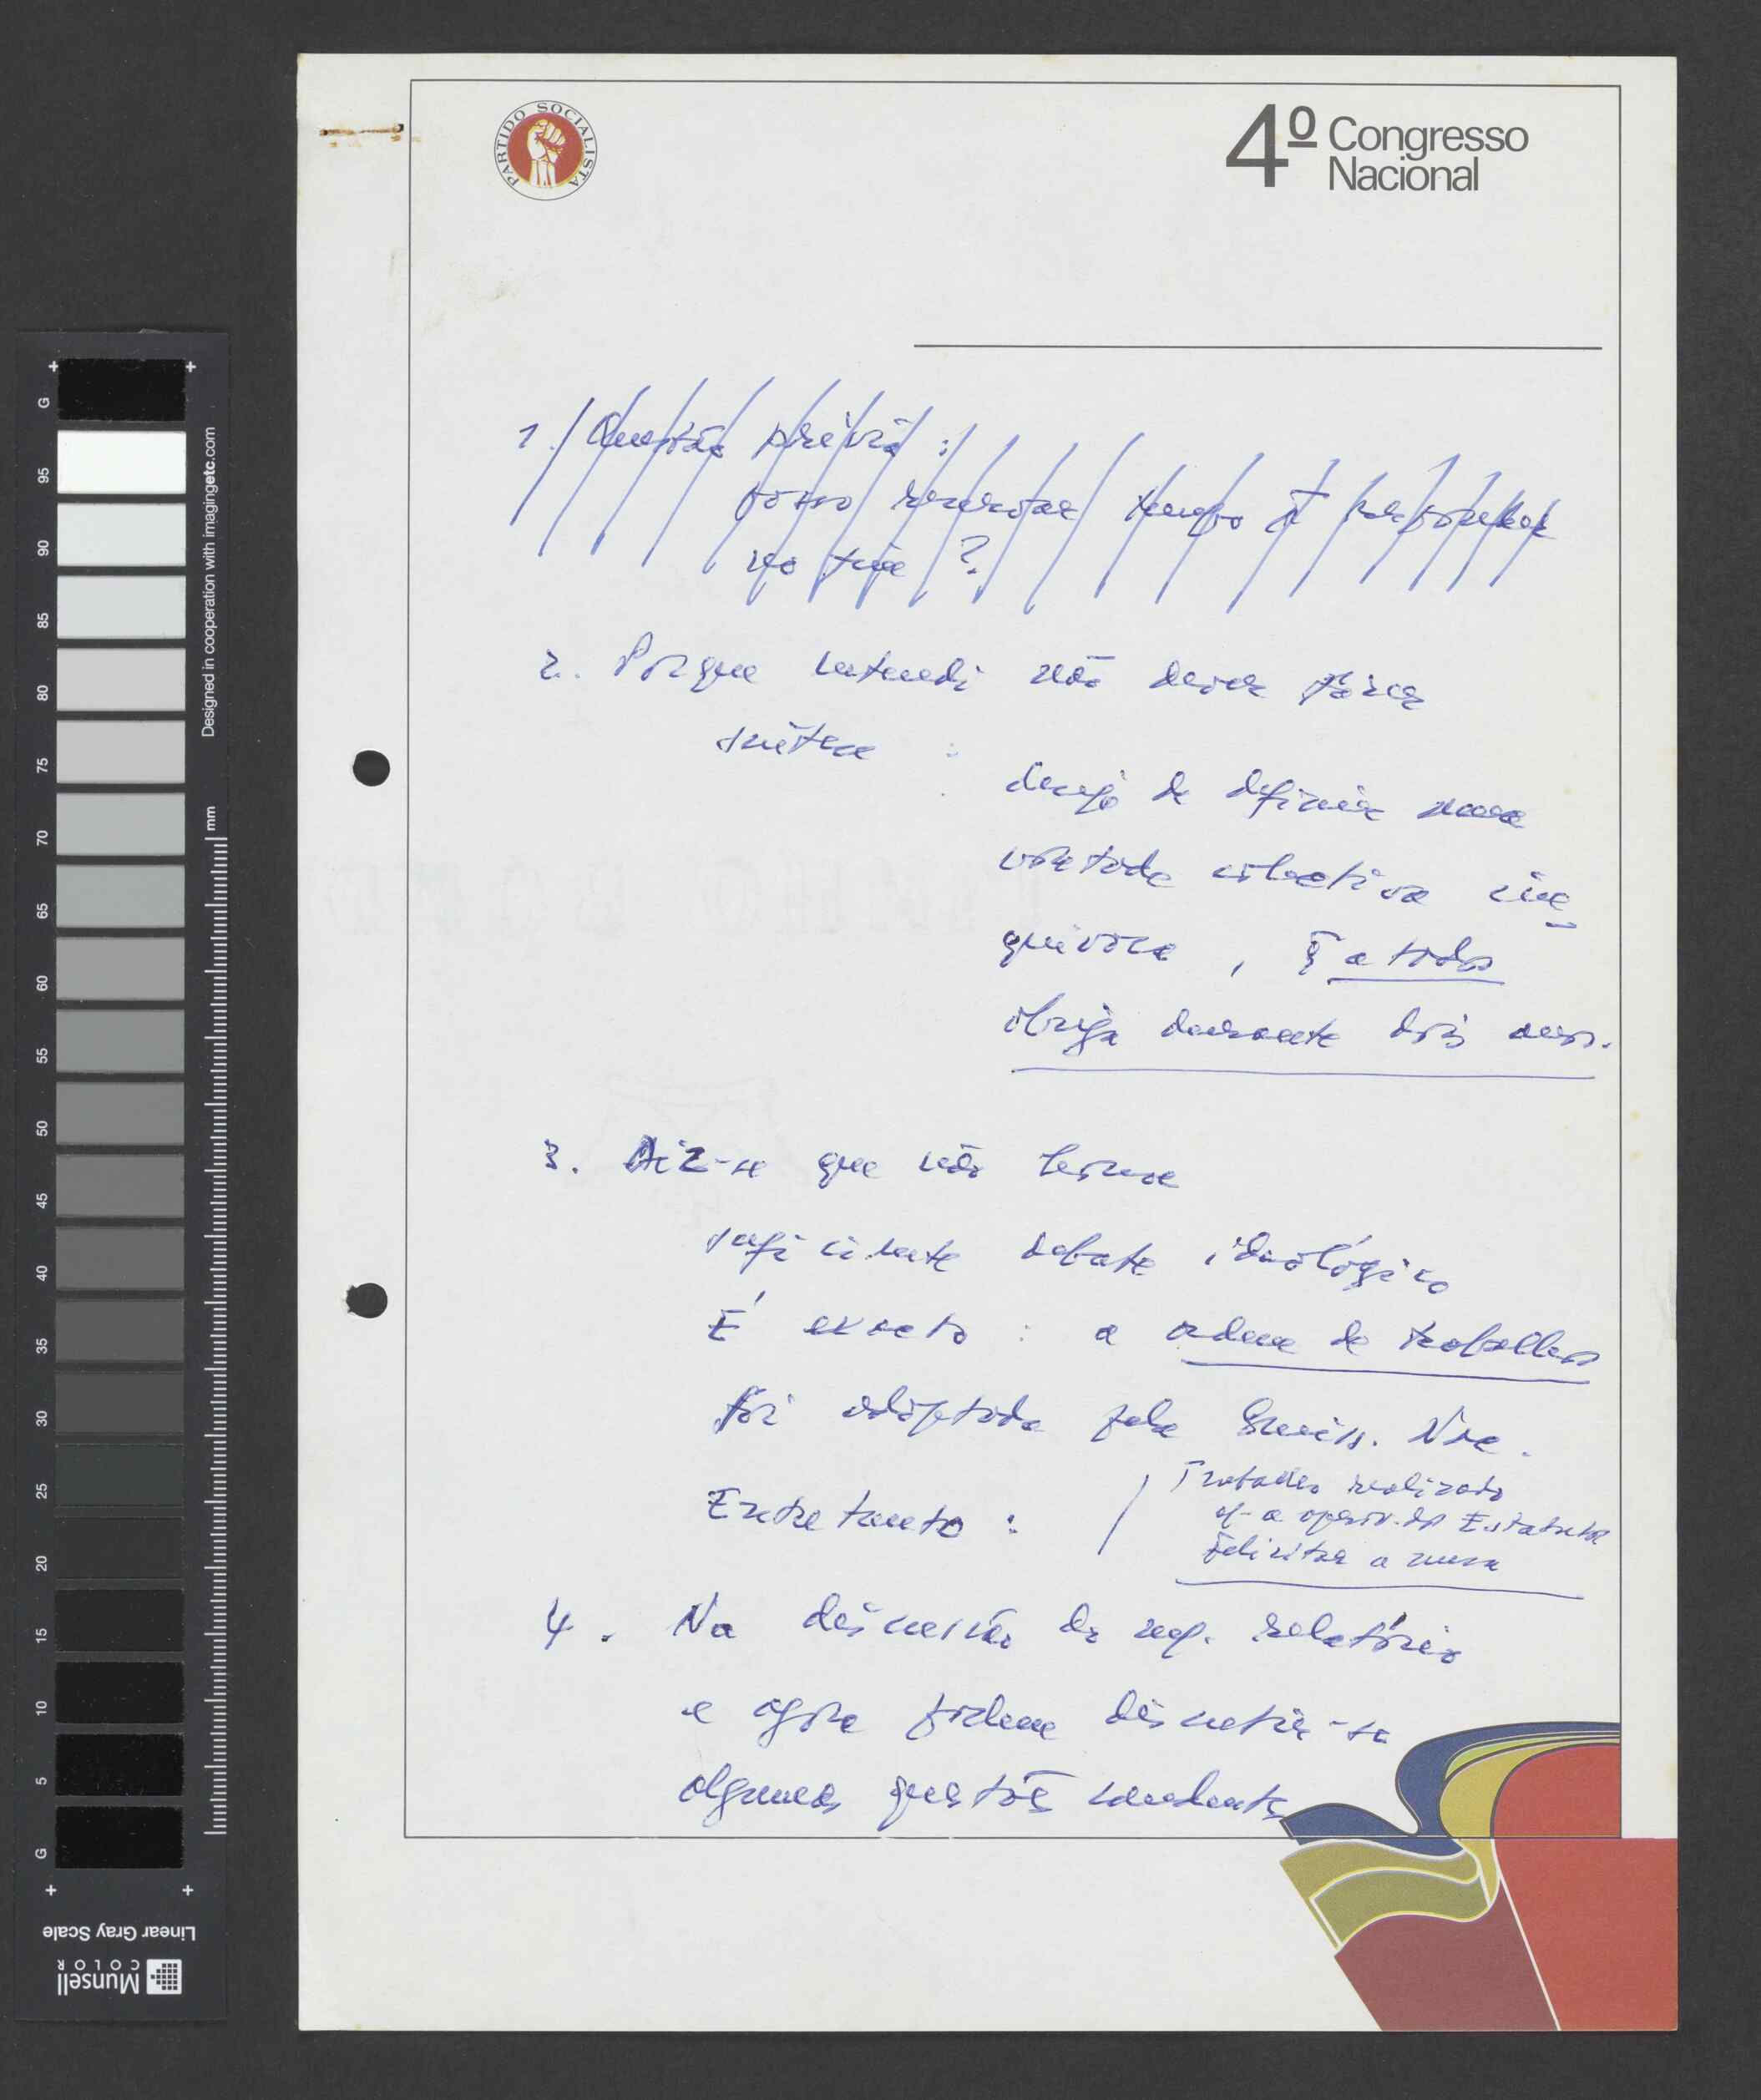 PARTIDO SOCIALISTA
4º Congresso
Nacional
1. Questão prévia:
posso reservar tempo p/ responder
no fim?
2. Porque entendi não dever fazer
síntese:
desejo de definir uma
vontade colectiva ine-
quívoca, q a todos
obriga durante dois anos.
3. Diz-se que não houve
suficiente debate ideológico
É exacto: a ordem de trabalhos
foi adoptada pela Comiss. Nac.
Entretanto:
Trabalho realizado
c/ a aprov. dos Estatutos
Felicitar a mesa
4. Na discussão do meu relatório
e agora podem discutir-se
algumas questões candentes
Designed in cooperation with imagingetc.com
mm
G
95
90
85
80
75
70
65
60
55
50
45
40
35
30
25
20
15
10
5
G
Linear Gray Scale
Munsell
COLOR